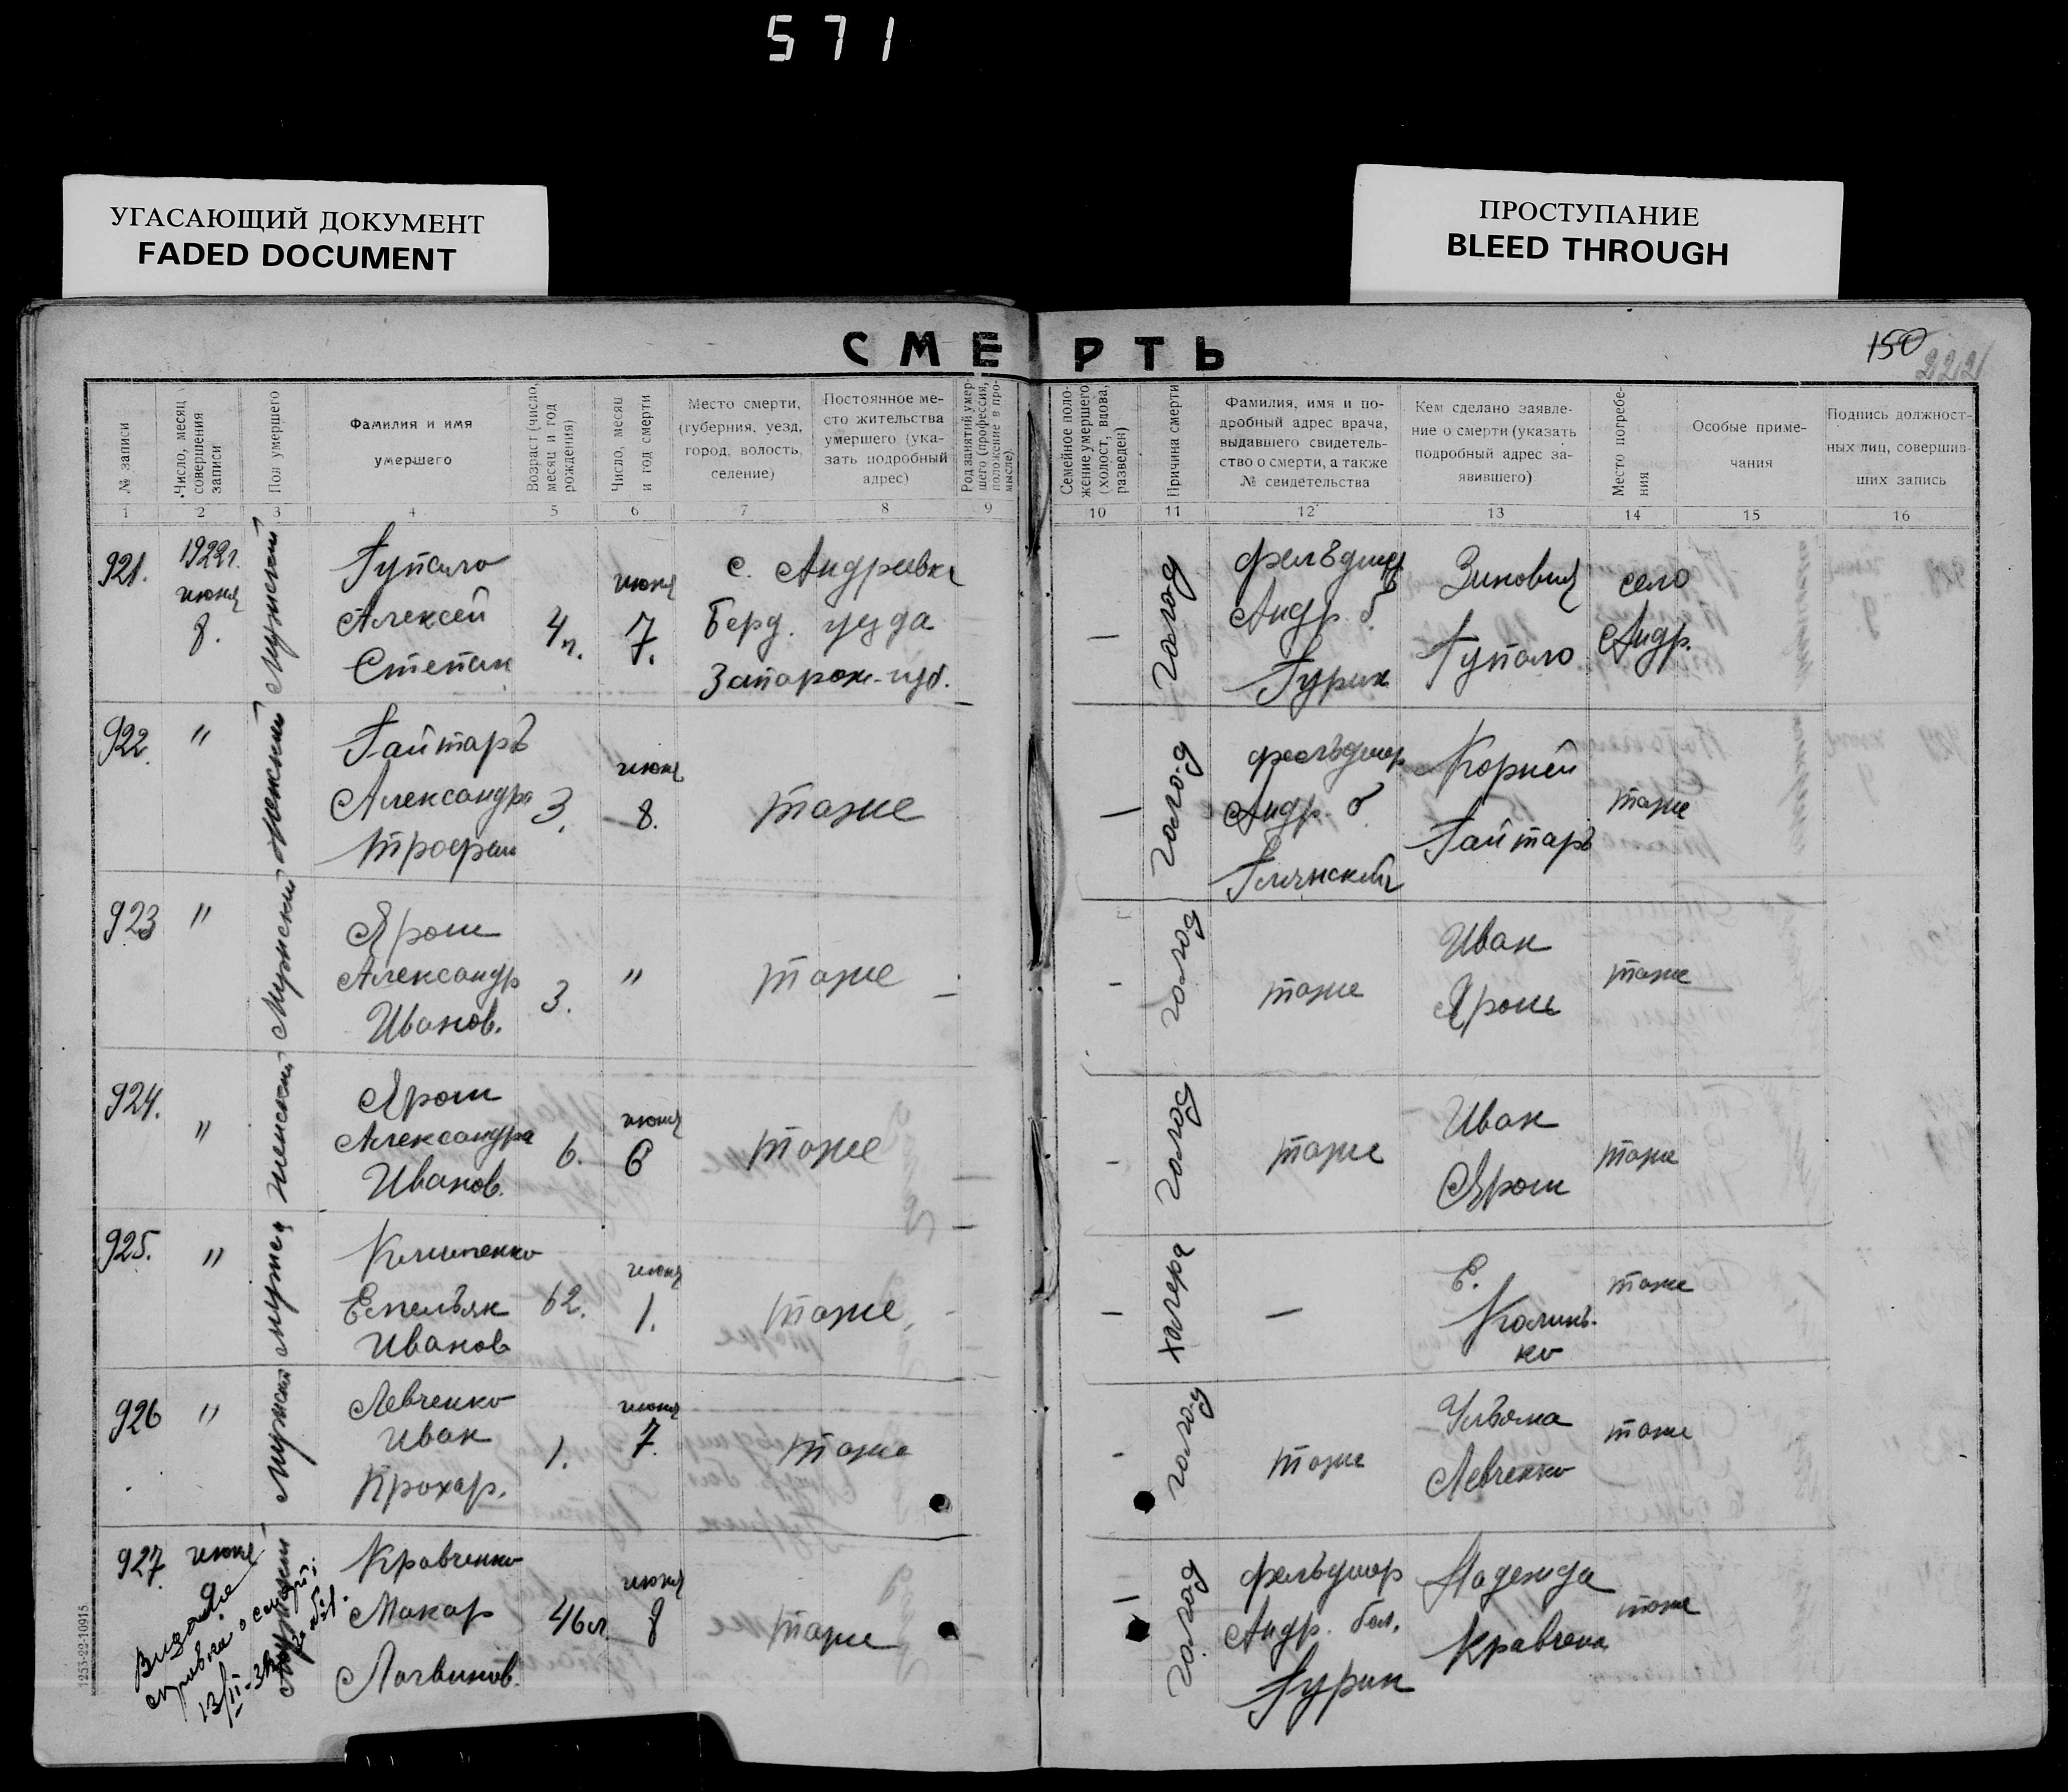 571
УГАСАЮЩИЙ ДОКУМЕНТ
FADED DOCUMENT
ПРОСТУПАНИЕ
BLEED THROUGH
СМЕРТЬ
150
222
№ записи
Число, месяц совершения записи
Пол умершего
Фамилия и имя умершего
Возраст (число, месяц и год рождения)
Число, месяц и год смерти
Место смерти, (губерния, уезд, город, волость, селение)
Постоянное место жительства умершего (указать подробный адрес)
Род занятий умершего (профессия, положение в промысле).
Семейное положение умершего (холост, вдова, разведен)
Причина смерти
Фамилия, имя и подробный адрес врача, выдавшего свидетельство о смерти, а также № свидетельства
Кем сделано заявление о смерти (указать подробный адрес заявившего)
Место погребения
Особые примечания
Подпись должностных лиц, совершивших запись
1 2 3 4 5 6 7 8 9 10 11 12 13 14 15 16
921.
1922г.
июня
8.
Мужеский
Гупало
Алексей
Степан
4 л.
июня
7.
с. Андреевка
Берд. уезда
Запарож. губ.
—
голод
фельдшер
Андр. б.
Гурин
Зиновия
Гупало
село
Андр.
922.
"
Женский
Гайтаръ
Александра
Трофим
3.
июня
8.
тоже
—
голод
фельдшор
Андр. б
Корней
Гайтаръ
тоже
923
"
Мужеский
Ярош
Александр
Иванов.
3.
"
тоже
-
голод
тоже
Иван
Ярош
тоже
924.
"
Женский
Ярош
Александра
Иванов.
6.
июня
6
тоже
-
голод
тоже
Иван
Ярош
тоже
925.
"
Емельян
Иванов
62.
июня
1.
тоже
—
халера
—
Е.
тоже
926
"
Мужской
Левченко
Иван
Прохар.
1.
июня
7.
тоже
-
голод
тоже
Ульяна
Левченко
тоже
927.
июня
9
Мужеский
Кравченко
Макар
46 л
июня
8
тоже
—
голод
фельдшор
Андр. бол.
Гурин
Надежда
тоже
1253-22-10915